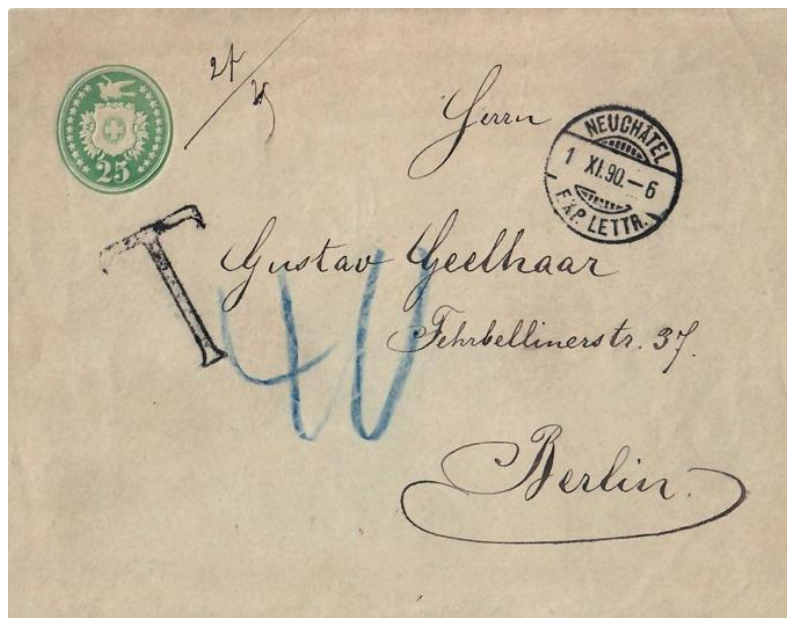 25
Herrn
NEUCHÂTEL
1 XI.90.–6
EXP. LETTR.
T
Gustav Geelhaar
40
Fehrbellinerstr. 37.
Berlin.